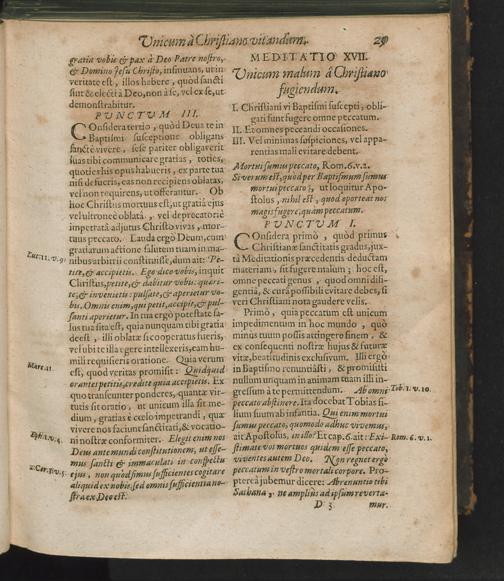 Unicum à Christiano vitandum. 29
gratia vobis & pax à Deo Patre nostro,
& Domino Jesu Christo, insinuans, ut in
veritate est, illos habere, quòd sancti
sint & electi à Deo, non à se, vel ex se, ut
demonstrabitur.
PUNCTUM III.
COnsidera tertio, quòd Deus te in
Baptismi susceptione obligans
sanctè vivere, sese pariter obligaverit
suas tibi communicare gratias, toties,
quoties his opus habueris, ex parte tua
nisi defueris, eas non recipiens oblatas,
vel non requirens, ut offerantur. Ob
hoc Christus mortuus est, ut gratiâ ejus
vel ultroneè oblatâ, vel deprecatoriè
impetratâ adjutus Christo vivas, mor-
tuus peccato. Lauda ergò Deum, cum
gratiarum actione salutem tuam in ma-
nibus arbitrii constituisse, dum ait: Pe-
Luc. 11. v. 9. tite, & accipietis. Ego dico vobis, inquit
Christus, petite, & dabitur vobis: quæri-
te, & invenietis: pulsate, & aperietur vo-
bis. Omnis enim, qui petit, accipit, & pul-
santi aperietur. In tua ergò potestate sa-
lus tua sita est, quia nunquam tibi gratia
deest, illi oblatæ si cooperatus fueris,
vel ubi te illa egere intellexeris, eam hu-
mili requisieris oratione. Quia verum
Marc. 11. est, quod veritas promisit: Quidquid
orantes petitis, credite quia accipietis. Ex
quo transeunter ponderes, quantæ vir-
tutis sit oratio, ut unicum illa sit me-
dium, gratias è cœlo impetrandi, quæ
vivere nos faciunt sanctificati, & vocatio-
Eph. 1. v. 4. ni nostræ conformiter. Elegit enim nos
Deus ante mundi constitutionem, ut esse-
mus sancti & immaculati in conspectu
2. Cor. 3. v. 5. ejus, non quòd simus sufficientes cogitare
aliquid ex nobis, sed omnis sufficientia no-
stra ex Deo est.
MEDITATIO XVII.
Unicum malum à Christiano
fugiendum.
I. Christiani vi Baptismi suscepti, obli-
gati sunt fugere omne peccatum.
II. Et omnes peccandi occasiones.
III. Vel minimas suspiciones, vel appa-
rentias mali evitare debent.
Mortui sumus peccato, Rom. 6. v. 2.
Si verum est, quòd per Baptismum sumus
mortui peccato, ut loquitur Apo-
stolus, nihil est, quod oporteat nos
magis fugere, quam peccatum.
PUNCTUM I.
COnsidera primò, quòd primus
Christianæ sanctitatis gradus, jux-
tà Meditationis præcedentis deductam
materiam, sit fugere malum; hoc est,
omne peccati genus, quod omni dili-
gentiâ, & curâ possibili evitare debes, si
veri Christiani nota gaudere velis.
Primò, quia peccatum est unicum
impedimentum in hoc mundo, quò
minus tuum possis attingere finem, &
ex consequenti nostræ hujus & futuræ
vitæ, beatitudinis exclusivum. Illi ergò
in Baptismo renuntiâsti, & promisisti
nullum unquam in animam tuam illi in-
gressum à te permittendum. Ab omni Tob. 1. v. 10.
peccato abstinere. Ita docebat Tobias fi-
lium suum ab infantia. Qui enim mortui
sumus peccato, quomodo adhuc vivemus,
ait Apostolus, in illo? Et cap. 6. ait: Exi- Rom. 6. v. 1.
stimate vos mortuos quidem esse peccato,
viventes autem Deo. Non regnet ergò
peccatum in vestro mortali corpore. Pro-
ptereà jubemur dicere: Abrenuntio tibi
Sathana, ne amplius ad ipsum reverta-
D 3 mur.